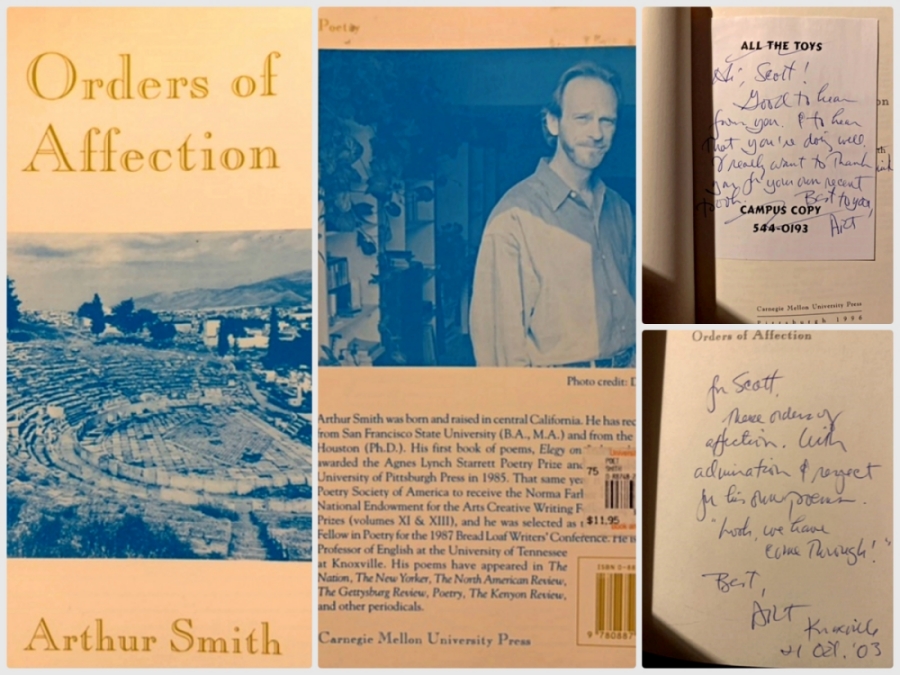 Orders of
Affection
Arthur Smith
Poetry
Photo credit: D
Arthur Smith was born and raised in central California. He has rec
from San Francisco State University (B.A., M.A.) and from the
Houston (Ph.D.). His first book of poems, Elegy on
awarded the Agnes Lynch Starrett Poetry Prize and
University of Pittsburgh Press in 1985. That same yea
Poetry Society of America to receive the Norma Farb
National Endowment for the Arts Creative Writing F
Prizes (volumes XI & XIII), and he was selected as t
Fellow in Poetry for the 1987 Bread Loaf Writers' Conference. He is
Professor of English at the University of Tennessee
at Knoxville. His poems have appeared in The
Nation, The New Yorker, The North American Review,
The Gettysburg Review, Poetry, The Kenyon Review,
and other periodicals.
Carnegie Mellon University Press
POET
SMITH
75
$11.95
ISBN 0-88
9 780887
ALL THE TOYS
Hi, Scott!
Good to hear
from you, & to hear
that you're doing well.
I really want to thank
you for your own recent
book. Best to you,
CAMPUS COPY
544-0193
Art
Carnegie Mellon University Press
Pittsburgh 1996
Orders of Affection
for Scott,
These orders of
affection. With
admiration & respect
for his own poems.
"Look, we have
come through!"
Best,
Art
Knoxville
21 Oct. '03